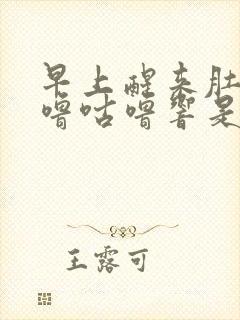 早上醒来肚
噜咕噜响是
王露可